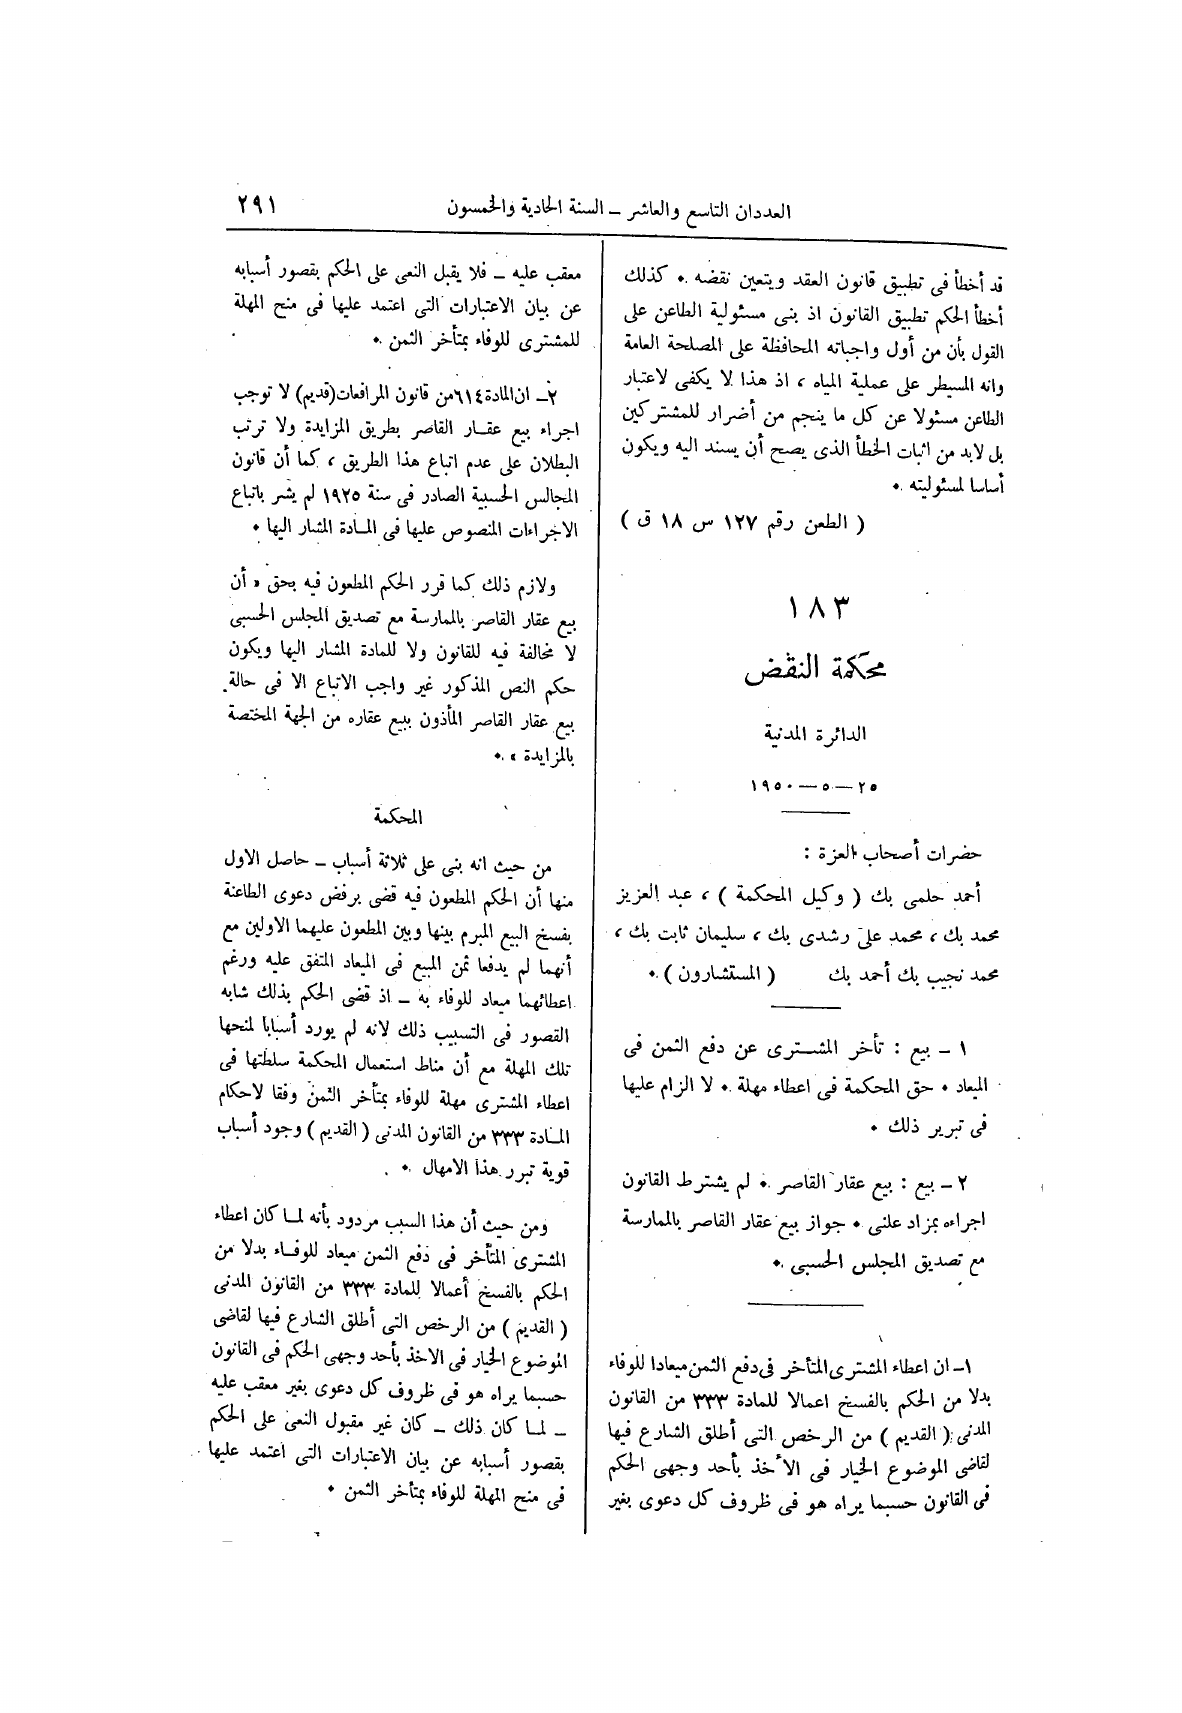 العددان التاسع والعاشر – السنة الحادية والخمسون
٢٩١
قد أخطأ فى تطبيق قانون العقد ويتعين نقضه . كذلك
أخطأ الحكم تطبيق القانون اذ بنى مسئولية الطاعن على
القول بأن من أول واجباته المحافظة على المصلحة العامة
وانه المسيطر على عملية المياه ، اذ هذا لا يكفى لاعتبار
الطاعن مسئولا عن كل ما ينجم من أضرار للمشتركين
بل لابد من اثبات الخطأ الذى يصح أن يسند اليه ويكون
أساسا لمسئوليته .
( الطعن رقم ١٢٧ س ١٨ ق )
١٨٣
محكمة النقض
الدائرة المدنية
٢٥ — ٥ — ١٩٥٠
حضرات أصحاب العزة :
أحمد حلمى بك ( وكيل المحكمة ) ، عبد العزيز
محمد بك ، محمد على رشدى بك ، سليمان ثابت بك ،
محمد نجيب بك أحمد بك ( المستشارون ) .
١ – بيع : تأخر المشترى عن دفع الثمن فى
الميعاد . حق المحكمة فى اعطاء مهلة . لا الزام عليها
فى تبرير ذلك .
٢ – بيع : بيع عقار القاصر . لم يشترط القانون
اجراءه بمزاد علنى . جواز بيع عقار القاصر بالممارسة
مع تصديق المجلس الحسبى .
١– ان اعطاء المشترى المتأخر فى دفع الثمن ميعادا للوفاء
بدلا من الحكم بالفسخ اعمالا للمادة ٣٣٣ من القانون
المدنى ( القديم ) من الرخص التى أطلق الشارع فيها
لقاضى الموضوع الخيار فى الأخذ بأحد وجهى الحكم
فى القانون حسبما يراه هو فى ظروف كل دعوى بغير
معقب عليه – فلا يقبل النعى على الحكم بقصور أسبابه
عن بيان الاعتبارات التى اعتمد عليها فى منح المهلة
للمشترى للوفاء بمتأخر الثمن .
٢– ان المادة ٦١٤ من قانون المرافعات (قديم) لا توجب
اجراء بيع عقار القاصر بطريق المزايدة ولا ترتب
البطلان على عدم اتباع هذا الطريق ، كما أن قانون
المجالس الحسبية الصادر فى سنة ١٩٢٥ لم يشر باتباع
الاجراءات المنصوص عليها فى المادة المشار اليها .
ولازم ذلك كما قرر الحكم المطعون فيه بحق « أن
بيع عقار القاصر بالممارسة مع تصديق المجلس الحسبى
لا مخالفة فيه للقانون ولا للمادة المشار اليها ويكون
حكم النص المذكور غير واجب الاتباع الا فى حالة
بيع عقار القاصر المأذون ببيع عقاره من الجهة المختصة
بالمزايدة » .
المحكمة
من حيث انه بنى على ثلاثة أسباب – حاصل الاول
منها أن الحكم المطعون فيه قضى برفض دعوى الطاعنة
بفسخ البيع المبرم بينها وبين المطعون عليهما الاولين مع
أنهما لم يدفعا ثمن المبيع فى الميعاد المتفق عليه ورغم
اعطائهما ميعاد للوفاء به – اذ قضى الحكم بذلك شابه
القصور فى التسبيب ذلك لانه لم يورد أسبابا لمنحها
تلك المهلة مع أن مناط استعمال المحكمة سلطتها فى
اعطاء المشترى مهلة للوفاء بمتأخر الثمن وفقا لاحكام
المادة ٣٣٣ من القانون المدنى ( القديم ) وجود أسباب
قوية تبرر هذا الامهال .
ومن حيث أن هذا السبب مردود بأنه لما كان اعطاء
المشترى المتأخر فى دفع الثمن ميعاد للوفاء بدلا من
الحكم بالفسخ أعمالا للمادة ٣٣٣ من القانون المدنى
( القديم ) من الرخص التى أطلق الشارع فيها لقاضى
الموضوع الخيار فى الاخذ بأحد وجهى الحكم فى القانون
حسبما يراه هو فى ظروف كل دعوى بغير معقب عليه
– لما كان ذلك – كان غير مقبول النعى على الحكم
بقصور أسبابه عن بيان الاعتبارات التى اعتمد عليها
فى منح المهلة للوفاء بمتأخر الثمن .